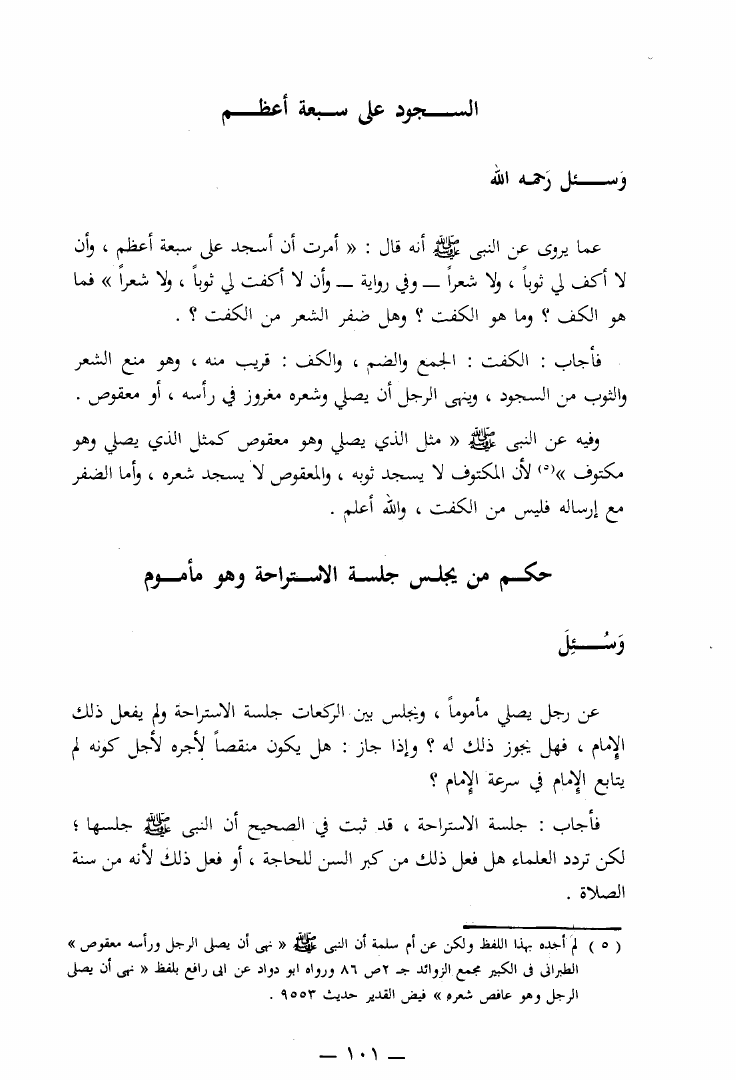 السجود على سبعة أعظم
وَسئل رَحمه الله
عما يروى عن النبى ﷺ أنه قال : « أمرت أن أسجد على سبعة أعظم ، وأن
لا أكف لي ثوباً ، ولا شعراً ــ وفي رواية ــ وأن لا أكفت لي ثوباً ، ولا شعراً » فما
هو الكف ؟ وما هو الكفت ؟ وهل ضفر الشعر من الكفت ؟ .
فأجاب : الكفت : الجمع والضم ، والكف : قريب منه ، وهو منع الشعر
والثوب من السجود ، وينهى الرجل أن يصلي وشعره مغروز في رأسه ، أو معقوص .
وفيه عن النبى ﷺ « مثل الذي يصلي وهو معقوص كمثل الذي يصلي وهو
مكتوف »(٥) لأن المكتوف لا يسجد ثوبه ، والمعقوص لا يسجد شعره ، وأما الضفر
مع إرساله فليس من الكفت ، والله أعلم .
حكم من يجلس جلسة الاستراحة وهو مأموم
وَسُئِلَ
عن رجل يصلي مأموماً ، ويجلس بين الركعات جلسة الاستراحة ولم يفعل ذلك
الإمام ، فهل يجوز ذلك له ؟ وإذا جاز : هل يكون منقصاً لأجره لأجل كونه لم
يتابع الإمام في سرعة الإمام ؟
فأجاب : جلسة الاستراحة ، قد ثبت في الصحيح أن النبى ﷺ جلسها ؛
لكن تردد العلماء هل فعل ذلك من كبر السن للحاجة ، أو فعل ذلك لأنه من سنة
الصلاة .
( ٥ ) لم أجده بهذا اللفظ ولكن عن أم سلمة أن النبى ﷺ « نهى أن يصلى الرجل ورأسه معقوص »
الطبرانى فى الكبير مجمع الزوائد جـ ٢ص ٨٦ ورواه ابو دواد عن ابى رافع بلفظ « نهى أن يصلى
الرجل وهو عاقص شعره » فيض القدير حديث ٩٥٥٣ .
ــ ١٠١ ــ